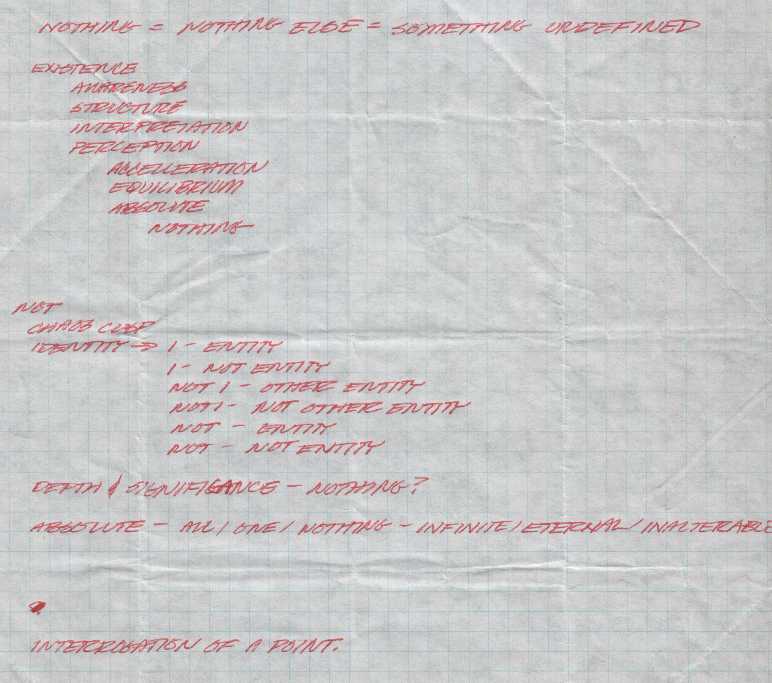 NOTHING = NOTHING ELSE = SOMETHING UNDEFINED
EXISTENCE
AWARENESS
STRUCTURE
INTERPRETATION
PERCEPTION
ACCELLERATION
EQUILIBRIUM
ABSOLUTE
NOTHING
NOT
IDENTITY → 1 - ENTITY
1 - NOT ENTITY
NOT 1 - OTHER ENTITY
NOT 1 - NOT OTHER ENTITY
NOT - ENTITY
NOT - NOT ENTITY
DEPTH & SIGNIFIGANCE - NOTHING?
ABSOLUTE - ALL / ONE / NOTHING - INFINITE / ETERNAL / INALTERABLE
INTERROGATION OF A POINT.